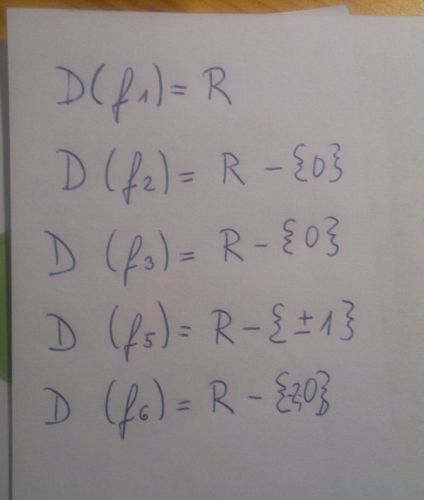 D(f1) = R
D (f2) = R - {0}
D (f3) = R - {0}
D (f5) = R - {±1}
D (f6) = R -